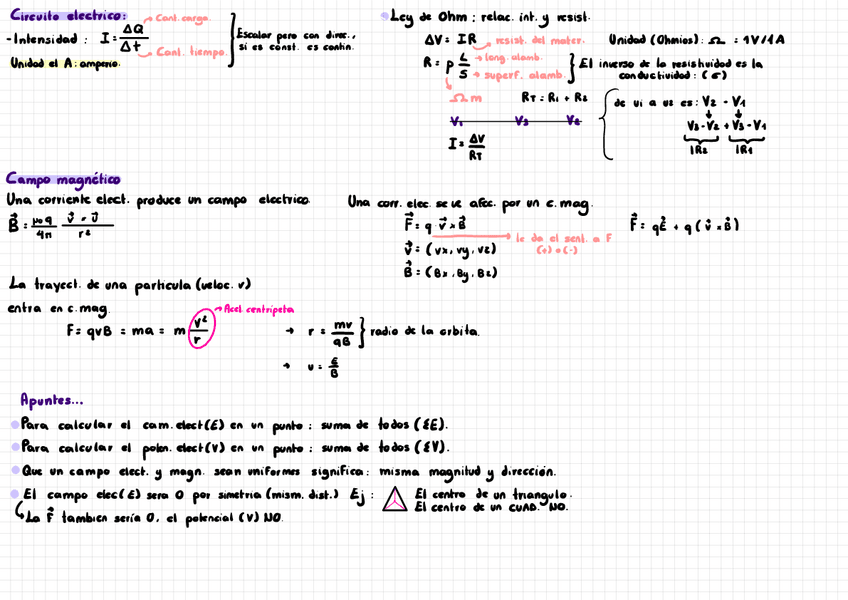 Circuito electrico:
Cant. carga.
- Intensidad : I = ΔQ / Δt
Cant. tiempo.
Escalar pero con direc.,
si es const. es contin.
Unidad el A: amperio.
Ley de Ohm : relac. int. y resist.
ΔV = IR
resist. del mater.
Unidad (Ohmios): Ω = 1V/1A
R = ρ L / S
long. alamb.
superf. alamb.
El inverso de la resistividad es la
conductividad : (σ)
Ω m
RT = R1 + R2
V1 V3 V2
I = ΔV / RT
de v1 a v2 es : V2 - V1
V3 - V2 + V3 - V1
IR2 IR1
Campo magnético
Una corriente elect. produce un campo electrico.
B⃗ = μ0 q / 4π
Una corr. elec. se ve afec. por un c. mag.
F⃗ = q · v⃗ × B⃗
F⃗ = qE⃗ + q (v⃗ × B⃗)
le da el sent. a F
(+) o (-)
v⃗ = (vx, vy, vz)
B⃗ = (Bx, By, Bz)
La trayect. de una particula (veloc. v)
entra en c. mag.
Acel centripeta
F = qvB = ma = m v² / r
→ r = mv / qB } radio de la orbita.
→ v = E / B
Apuntes...
Para calcular el cam. elect (E) en un punto : suma de todos (ΣE).
Para calcular el poten. elect (V) en un punto : suma de todos (ΣV).
Que un campo elect. y magn. sean uniformes significa : misma magnitud y dirección.
El campo elec (E) sera 0 por simetria (mism. dist.) Ej :
El centro de un triangulo.
El centro de un CUAD. NO.
La F⃗ tambien sería 0, el potencial (V) NO.